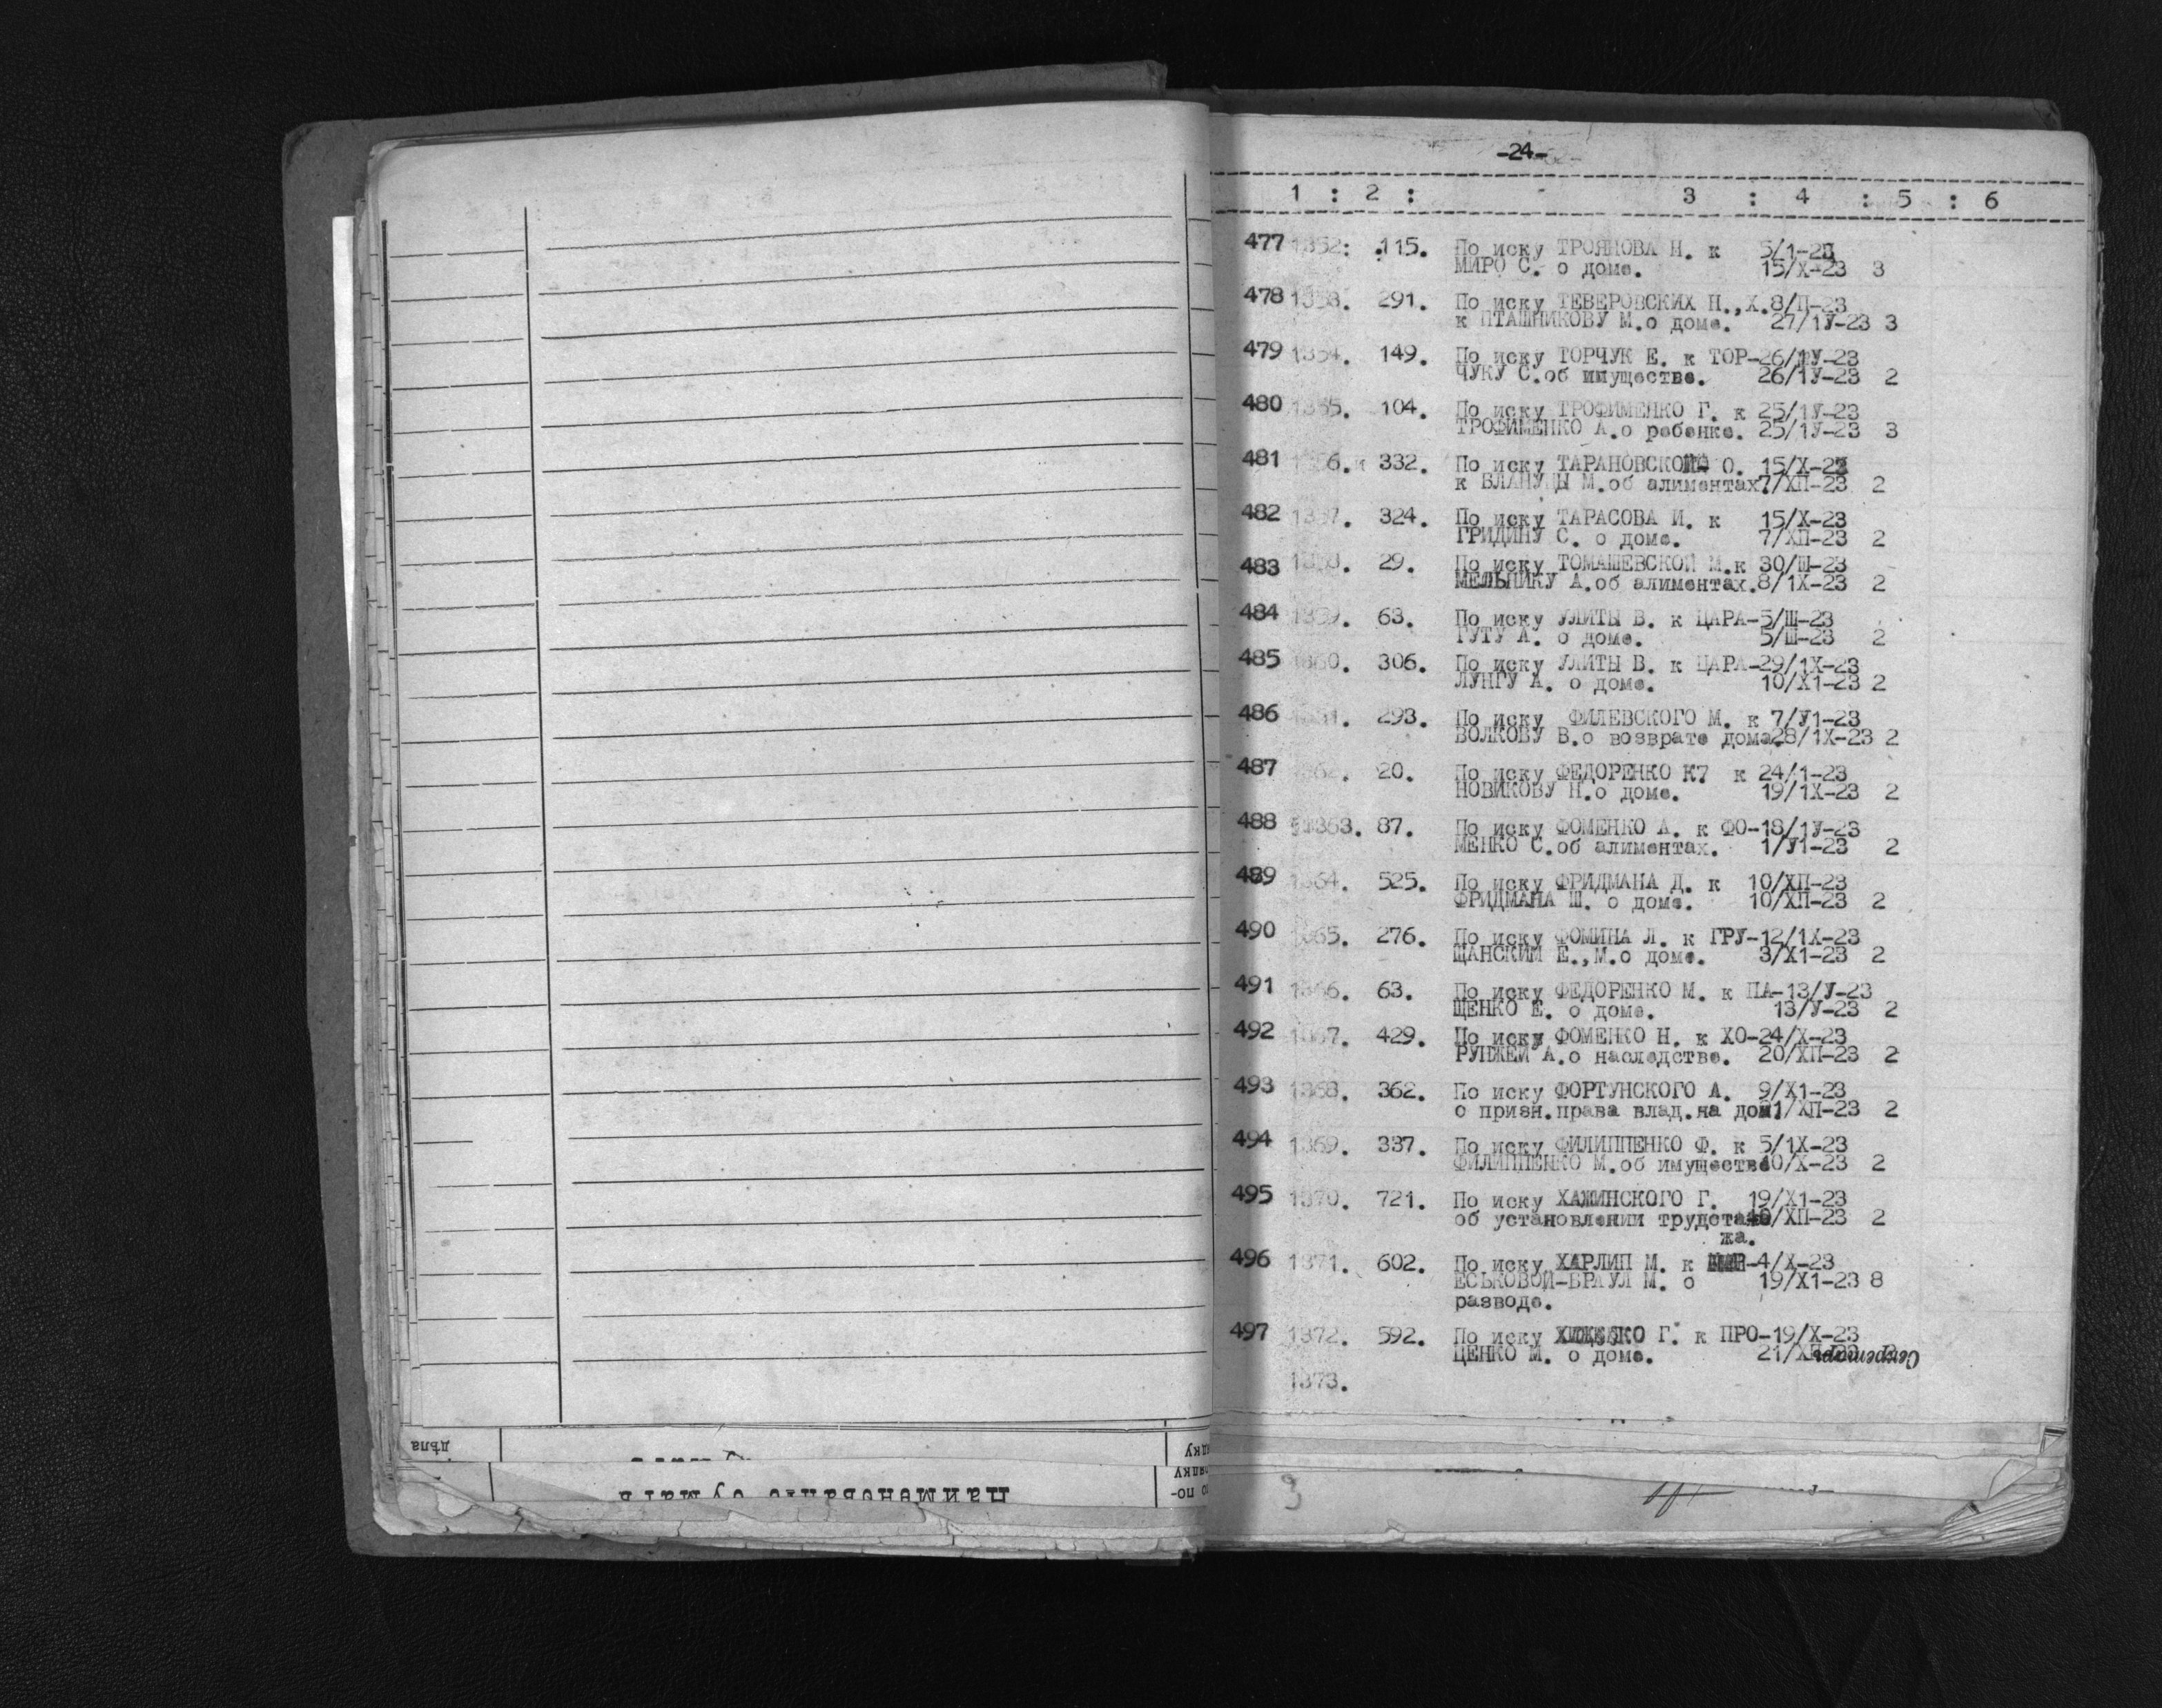 -24-
1 : 2 : 3 : 4 : 5 : 6
477 1352: .115. По иску ТРОЯНОВА Н. к 5/1-23
МИРО С. о доме. 15/Х-23 3
478 1353. 291. По иску ТЕВЕРОВСКИХ Н.,Х. 8/П-23
к ПТАШНИКОВУ М.о доме. 27/1У-23 3
479 1354. 149. По иску ТОРЧУК Е. к ТОР-26/1У-23
ЧУКУ С.об имуществе. 26/1У-23 2
480 1355. 104. По иску ТРОФИМЕНКО Г. к 25/1У-23
ТРОФИМЕНКО А.о ребенке. 25/1У-23 3
481 1356. 332. По иску ТАРАНОВСКОЙ О. 15/Х-23
к М.об алиментах. 7/ХП-23 2
482 1357. 324. По иску ТАРАСОВА И. к 15/Х-23
ГРИДИНУ С. о доме. 7/ХП-23 2
483 1358. 29. По иску ТОМАШЕВСКОЙ М.к 30/Ш-23
МЕЛЬНИКУ А.об алиментах.8/1Х-23 2
484 1359. 63. По иску УЛИТЫ В. к ЦАРА-5/Ш-23
ГУТУ А. о доме. 5/Ш-23 2
485 1360. 306. По иску УЛИТЫ В. к ЦАРА-29/1Х-23
ЛУНГУ А. о доме. 10/Х1-23 2
486 1361. 293. По иску ФИЛЕВСКОГО М. к 7/У1-23
ВОЛКОВУ В.о возврате дома.28/1Х-23 2
487 1362. 20. По иску ФЕДОРЕНКО К7 к 24/1-23
НОВИКОВУ Н.о доме. 19/1Х-23 2
488 1363. 87. По иску ФОМЕНКО А. к ФО-18/1У-23
МЕНКО С.об алиментах. 1/У1-23 2
489 1364. 525. По иску ФРИДМАНА Д. к 10/ХП-23
ФРИДМАНА Ш. о доме. 10/ХП-23 2
490 1365. 276. По иску ФОМИНА Л. к ГРУ-12/1Х-23
ЩАНСКИМ Е.,М.о доме. 3/Х1-23 2
491 1366. 63. По иску ФЕДОРЕНКО М. к ПА-13/У-23
ЩЕНКО Е. о доме. 13/У-23 2
492 1367. 429. По иску ФОМЕНКО Н. к ХО-24/Х-23
РУНЖЕЙ А.о наследстве. 20/ХП-23 2
493 1368. 362. По иску ФОРТУНСКОГО А. 9/Х1-23
о призн.права влад.на дом /ХП-23 2
494 1369. 337. По иску ФИЛИППЕНКО Ф. к 5/1Х-23
ФИЛИППЕНКО М.об имуществе10/Х-23 2
495 1370. 721. По иску ХАЖИНСКОГО Г. 19/Х1-23
об установлении трудста- /ХП-23 2
жа.
496 1371. 602. По иску ХАРЛИП М. к -4/Х-23
ЕСЬКОВОЙ-БРАУЛ М. о 19/Х1-23 8
разводе.
497 1372. 592. По иску Г. к ПРО-19/Х-23
ЦЕНКО М. о доме. 21/ХП-23
Секретарь
1373.
дѣла
наименованіе бумагъ